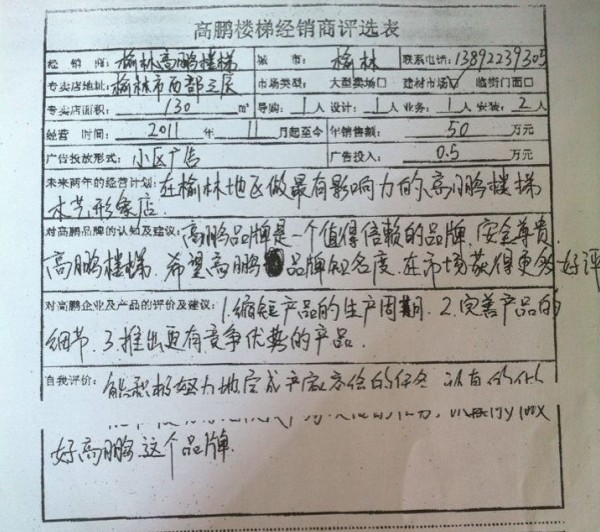 高鹏楼梯经销商评选表
经 销 商: 榆林高鹏楼梯 城 市: 榆林 联系电话: 13892239305
专卖店地址: 榆林市西部之 市场类型: 大型卖场□ 建材市场☑ 临街门面□
专卖店面积: 130 m² 导购: 1 人 设计: 1 人 业务: 1 人 安装: 2 人
经营 时间: 2011 年 11 月起至今 年销售额: 50 万元
广告投放形式: 小区广告 广告投入: 0.5 万元
未来两年的经营计划: 在榆林地区做最有影响力的高鹏楼梯
木艺形象店.
对高鹏品牌的认知及建议: 高鹏品牌是一个值得信赖的品牌,安全尊贵,
高鹏楼梯.希望高鹏品牌知名度.在市场获得更多好评
对高鹏企业及产品的评价及建议: 1.缩短产品的生产周期. 2.完善产品的
细节. 3.推出更有竞争优势的产品.
自我评价: 能积极努力地完成厂家交给的任务
好高鹏这个品牌.